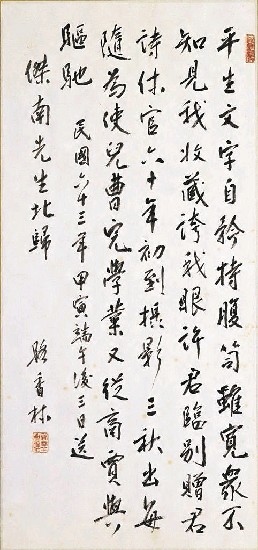 平生文字自矜持腹笥雖寬眾不
知見我收藏誇我眼許君臨別贈君
詩休官六十年初到攝影三秋出每
隨為使兒曹完學業又從商賈與
驅馳 民國六十三年甲寅端午後三日送
傑南先生北歸
駱香林